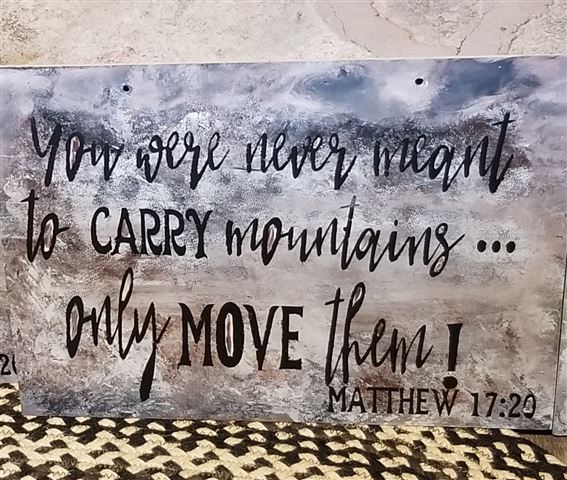 You were never meant
to CARRY mountains...
only MOVE them!
MATTHEW 17:20